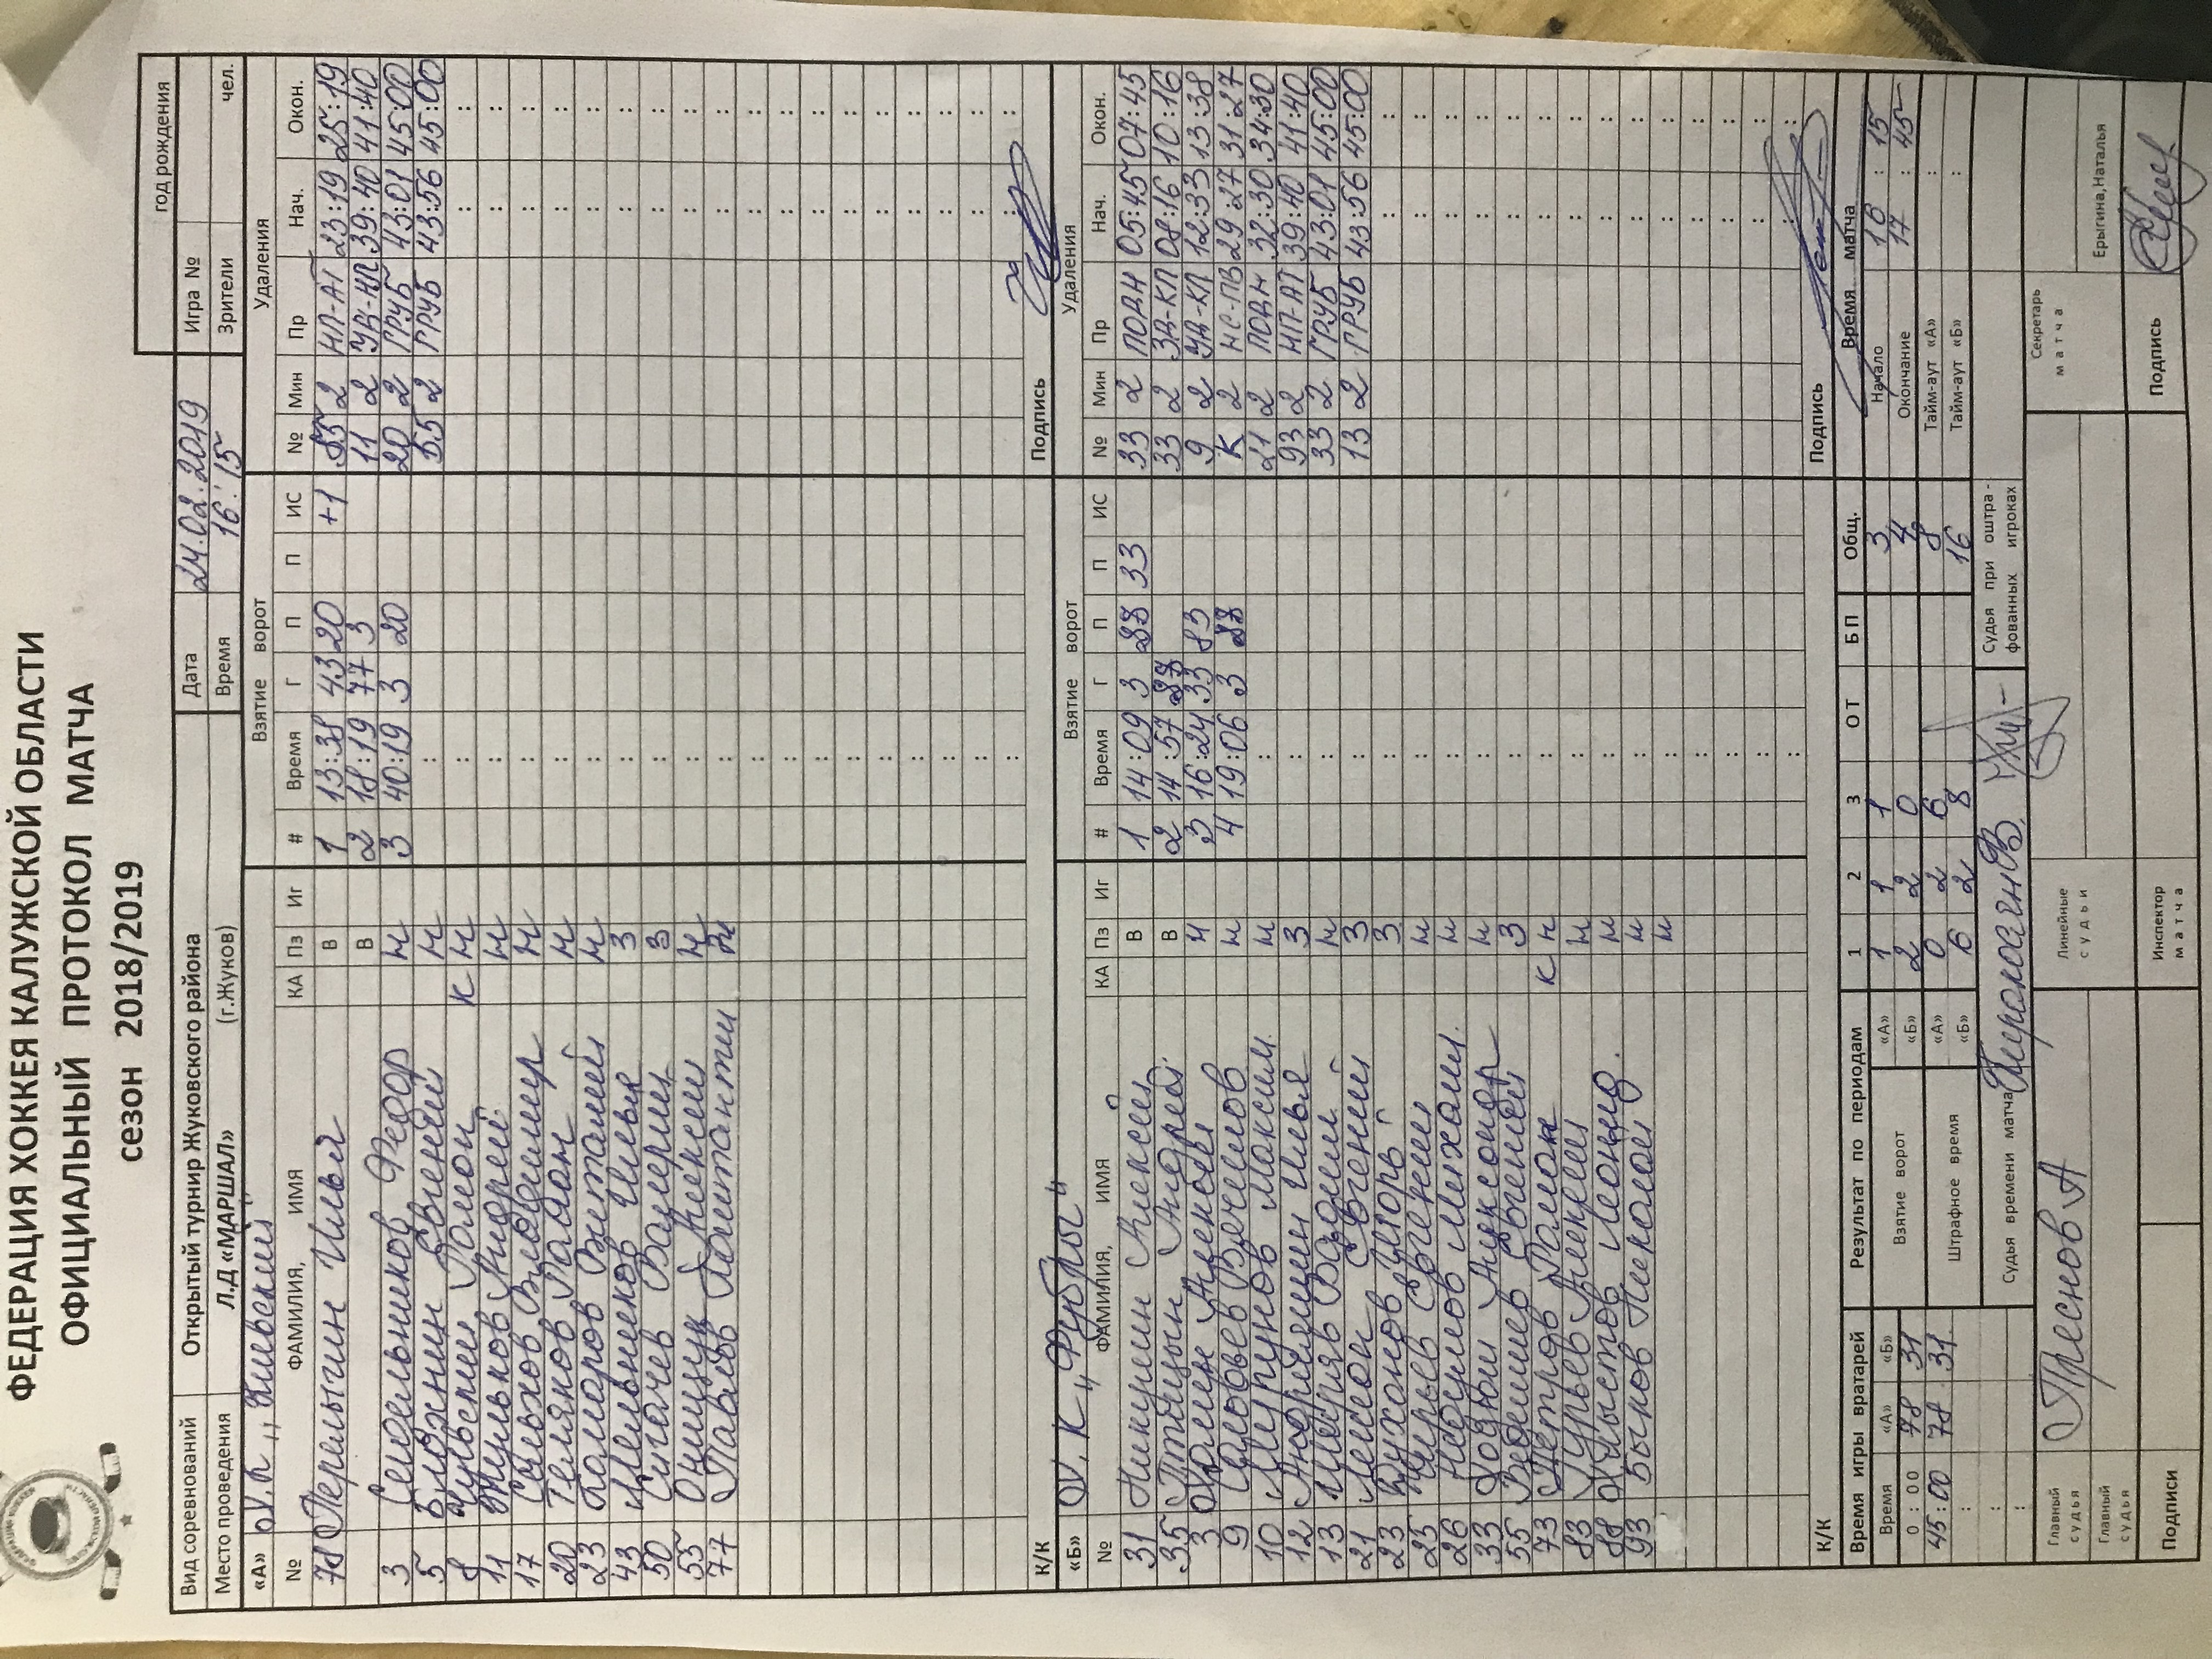 ФЕДЕРАЦИЯ ХОККЕЯ КАЛУЖСКОЙ ОБЛАСТИ
ОФИЦИАЛЬНЫЙ ПРОТОКОЛ МАТЧА
сезон 2018/2019
год рождения
Вид соревнований Открытый турнир Жуковского района Дата 24.02.2019 Игра №
Место проведения Л.Д «МАРШАЛ» (г.Жуков) Время 16:15 Зрители чел.
«А» Взятие ворот Удаления
№ ФАМИЛИЯ, ИМЯ КА Пз Иг # Время Г П П ИС № Мин Пр Нач. Окон.
78 Перлыгин Илья В 1 13:38 43 20 +1 55 2 НП-АТ 23:19 25:19
В 2 18:19 77 3 11 2 39:40 41:40
3 Сидельников Федор Н 3 40:19 3 20 20 2 ГРУБ 43:01 45:00
5 Блохнин Евгений Н 55 2 ГРУБ 43:56 45:00
8 Роман К Н
11 Андрей Н
17 Сальхов Владимир Н
20 Теляков Н
23 Комаров Виталий Н
43 Мельников Илья З
50 Сигачев Валерий З
55 Онищук Алексей Н
77 Павлов Константин
К/К Подпись
«Б» Взятие ворот Удаления
№ ФАМИЛИЯ, ИМЯ КА Пз Иг # Время Г П П ИС № Мин Пр Нач. Окон.
31 Никулин Алексей В 1 14:09 3 33 33 2 ПОДН 05:45 07:45
35 Птицын Андрей В 2 14:57 33 2 ЗД-КЛ 08:16 10:16
3 Н 3 16:24 33 83 9 2 УД-КЛ 12:33 13:38
9 Соловьев Вячеслав Н 4 19:06 3 К 2 НС-ПВ 29:27 31:27
10 Максим Н 21 2 ПОДН 32:30 34:30
12 Андрияшин Илья З 93 2 НП-АТ 39:40 41:40
13 Вадим Н 33 2 ГРУБ 43:01 45:00
21 Лемон Евгений З 13 2 ГРУБ 43:56 45:00
23 Буханов Игорь З
25 Евгений Н
26 Недумов Михаил Н
33 Ходюш Александр Н
55 Евгений З
73 Петров Роман К Н
83 Гурьев Алексей Н
88 Хлыстов Леонид Н
93 Быков Николай Н
Н
К/К Подпись
Время игры вратарей Результат по периодам 1 2 3 ОТ БП Общ. Время матча
Время «А» «Б» Взятие ворот «А» 1 1 1 3 Начало 16 : 15
0 : 00 78 31 «Б» 2 2 0 4 Окончание 17 : 45
45:00 78 31 Штрафное время «А» 0 2 6 8 Тайм-аут «А» :
«Б» 6 2 8 16 Тайм-аут «Б» :
Судья времени матча Судья при оштрафованных игроках
Главный судья Преснов А Линейные судьи Секретарь матча
Главный судья Ерыгина,Наталья
Подписи Инспектор матча Подпись